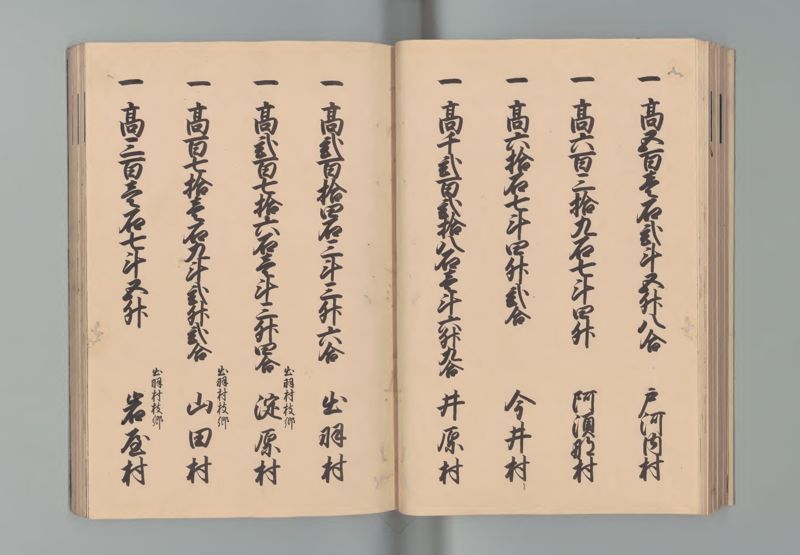 一 高五百壱石弐斗五升八合 戸河内村
一 高六百三拾九石七斗四升 阿須那村
一 高六拾石七斗四升弐合 今井村
一 高千弐百弐拾八石壱斗六升九合 井原村
一 高弐百拾四石三斗三升六合 出羽村
一 高弐百七拾六石壱斗三升四合 出羽村枝郷 淀原村
一 高百七拾壱石九斗弐升弐合 出羽村枝郷 山田村
一 高三百壱石七斗五升 出羽村枝郷 岩屋村